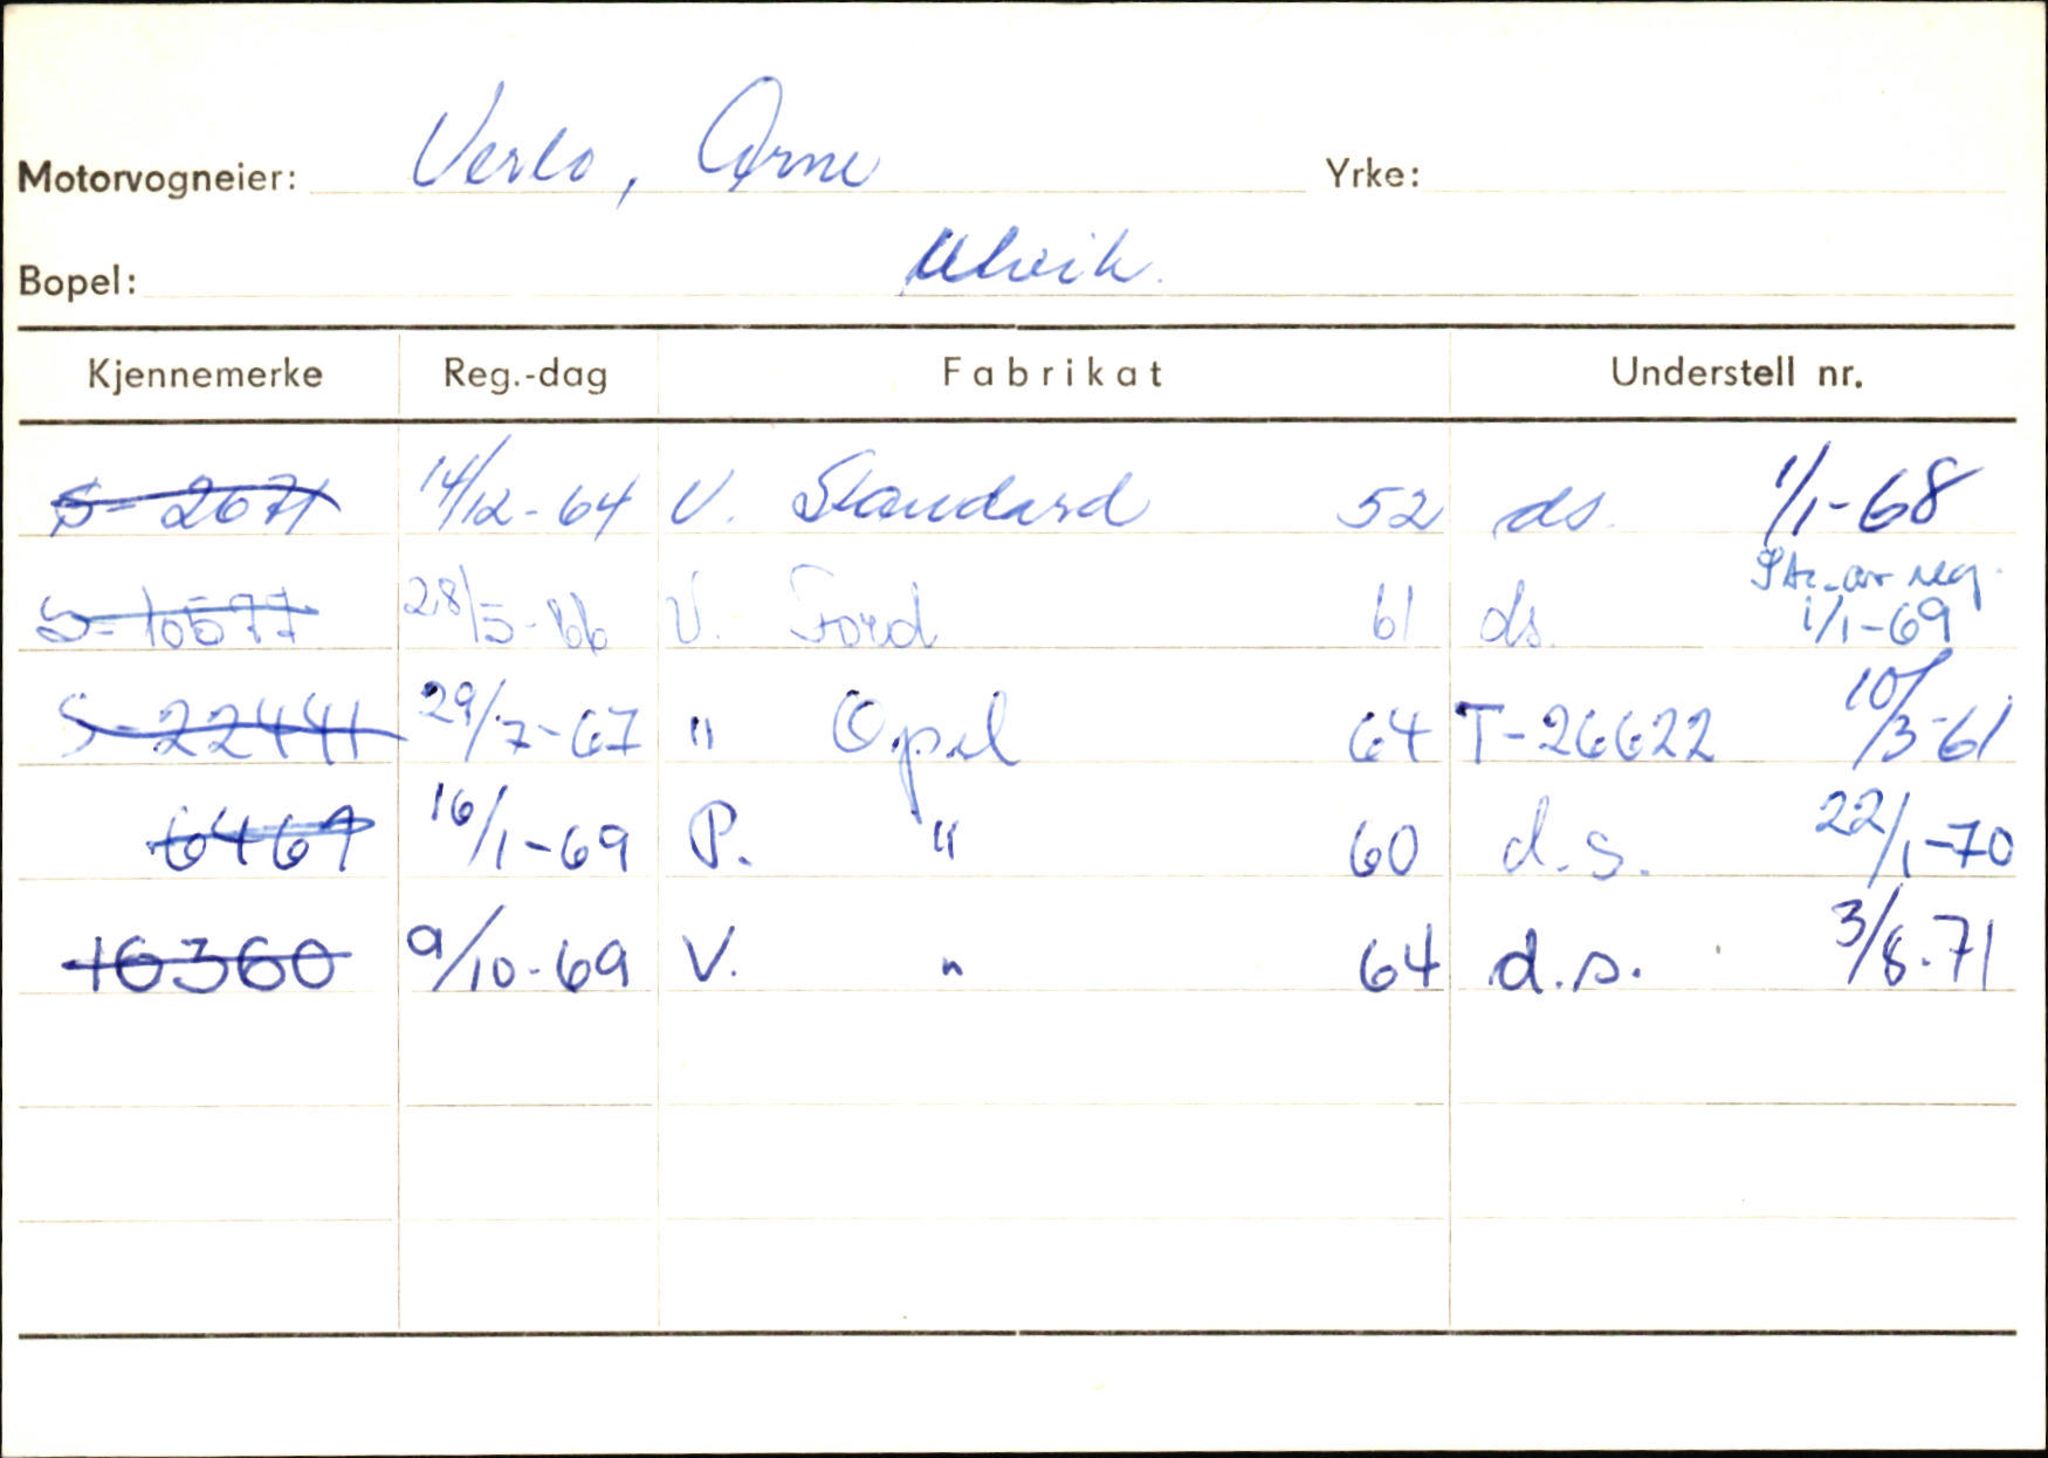 Motorvogneier: Verlo, Arne Yrke:
Bopel: Ulvik.
Kjennemerke Reg.-dag Fabrikat Understell nr.
S-2671 14/12-64 V. Standard 52 ds. 1/1-68
Str. av reg.
S-10577 28/5-66 V. Ford 61 ds. 1/1-69
S-22441 29/7-67 " Opel 64 T-26622 10/3-61
6469 16/1-69 P. " 60 d.s. 22/1-70
16360 9/10-69 V. " 64 d.s. 3/8.71